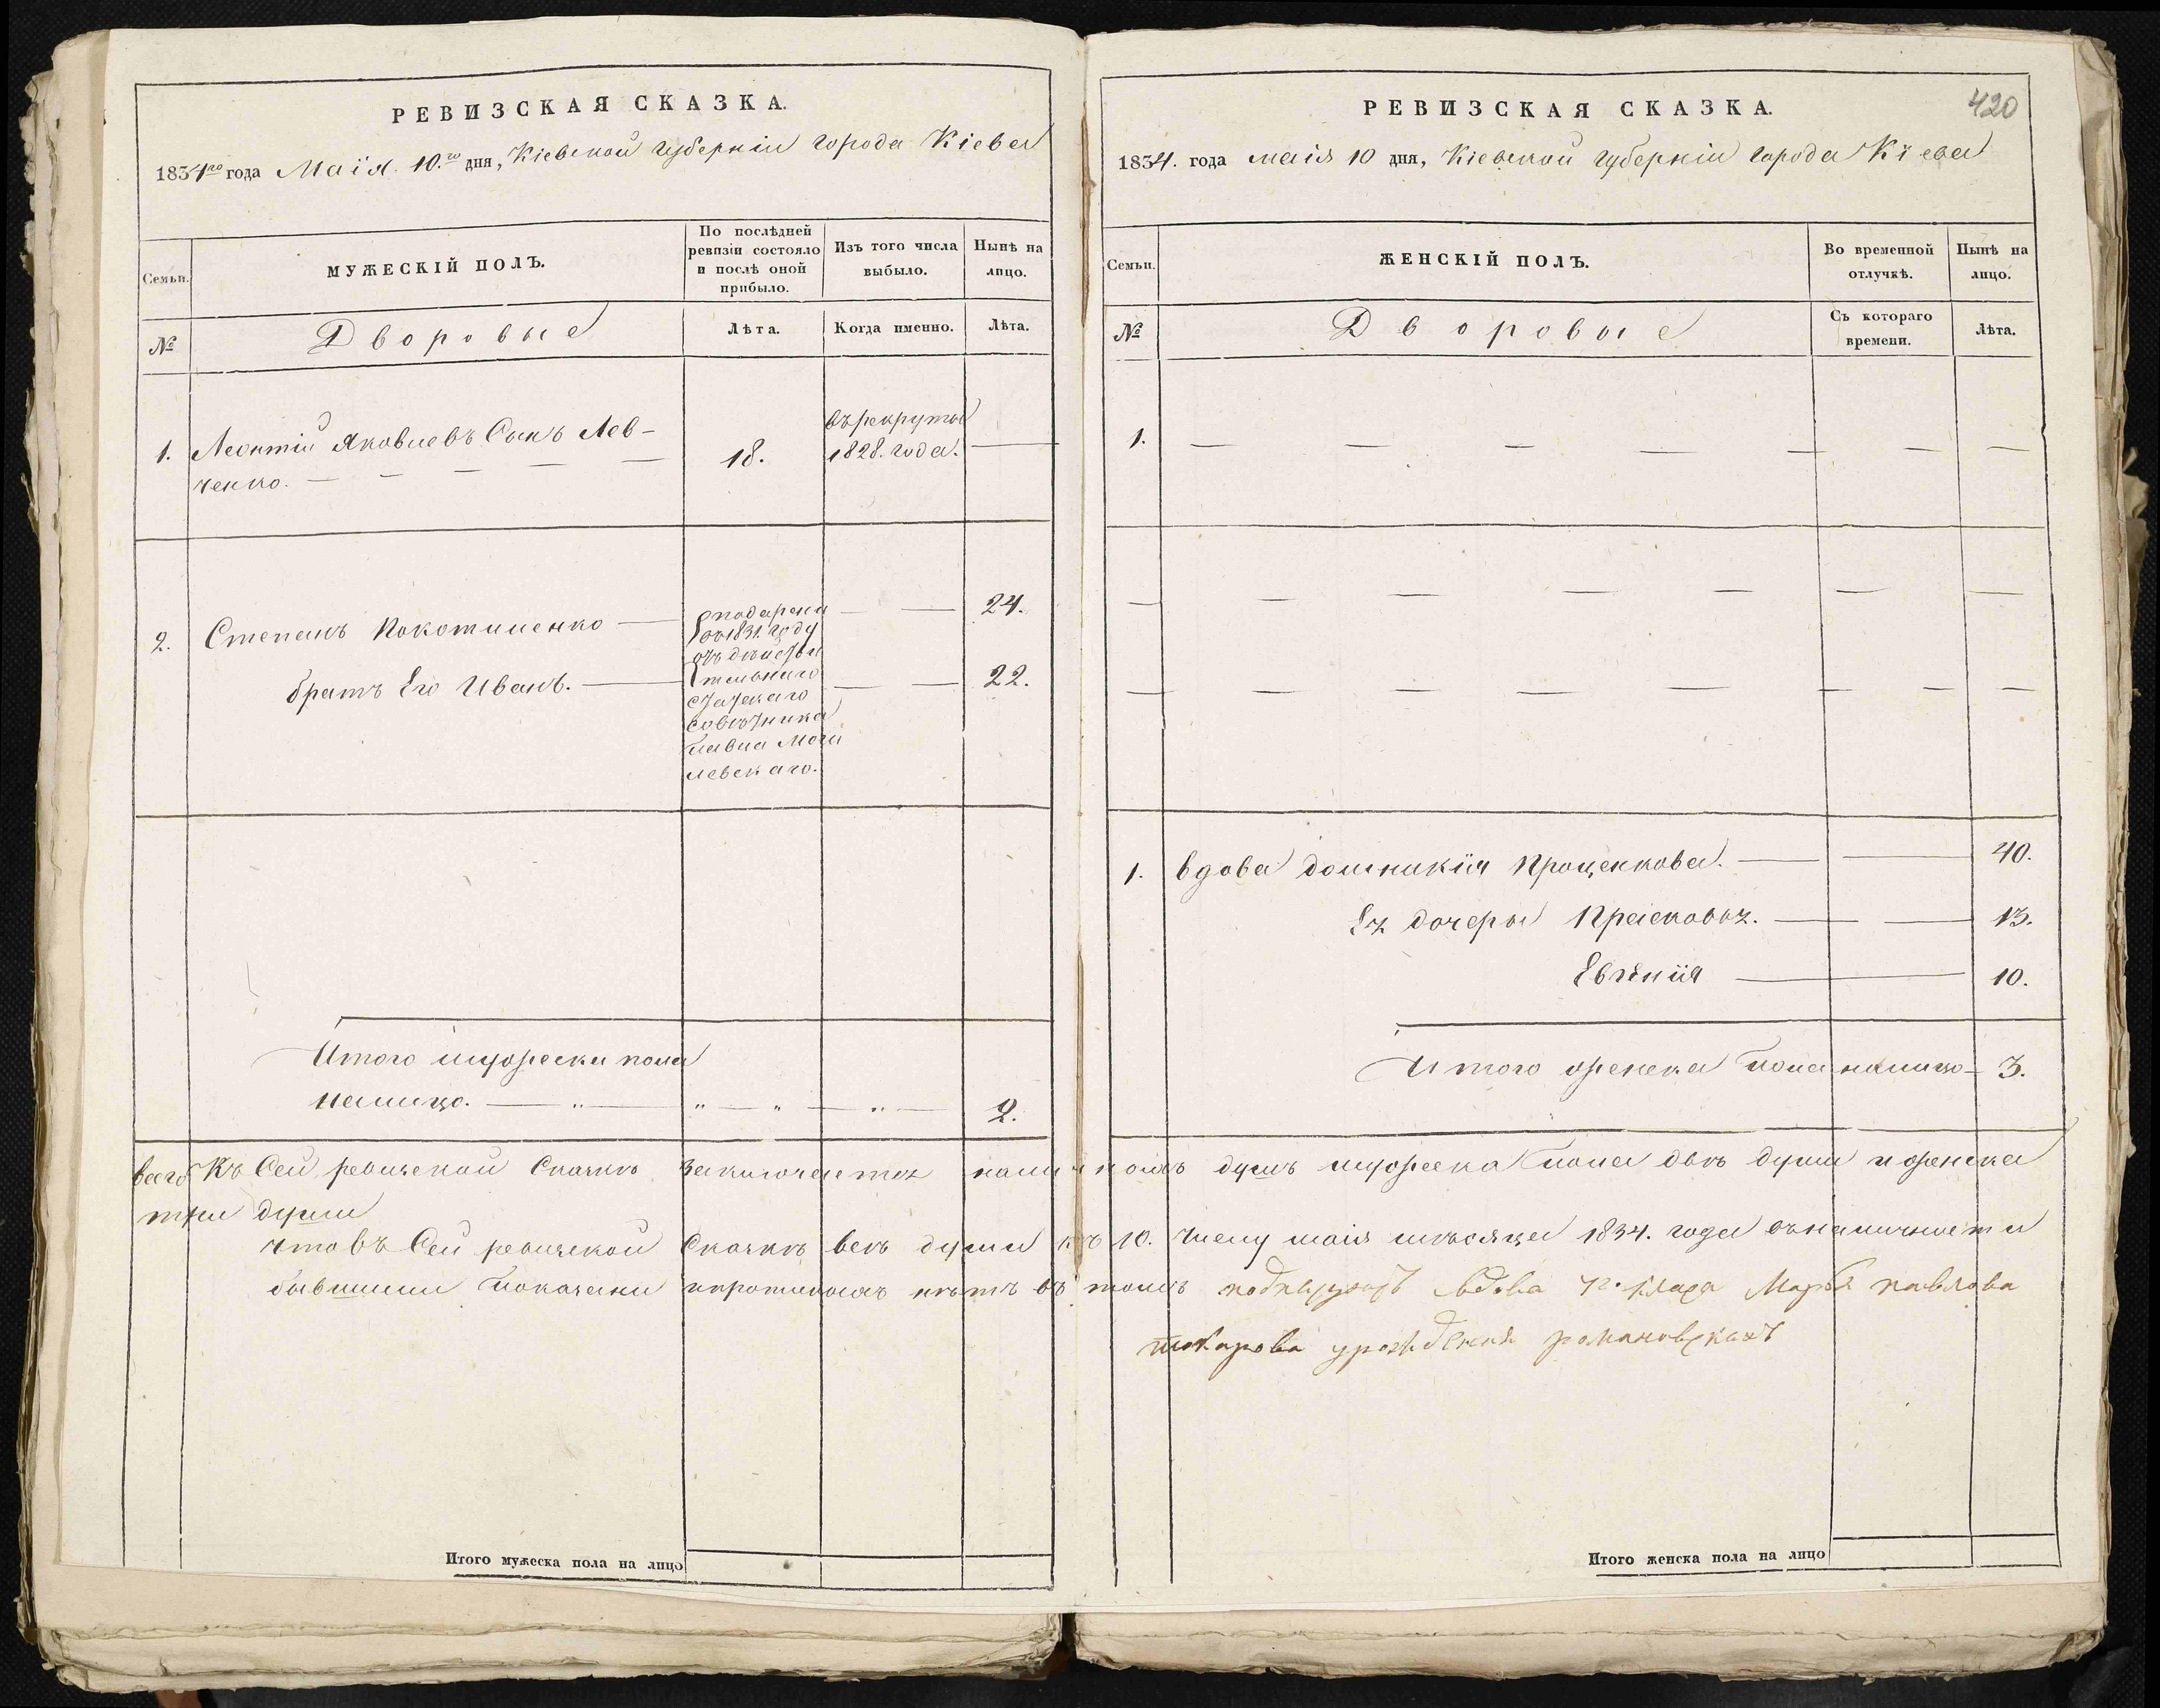 РЕВИЗСКАЯ СКАЗКА.
1834го года Маія 10.го дня, Кіевской губерніи города Кіева
Семьи.
МУЖЕСКІЙ ПОЛЪ.
По послѣдней
ревизіи состояло
и послѣ оной
прибыло.
Изъ того числа
выбыло.
Нынѣ на
лицо.
№
Дворовые
Лѣта.
Когда именно.
Лѣта.
1.
Леонтій Яковлевъ Сынъ Лев-
ченко.
18.
въ рекруты
1828. года.
2.
Степанъ
24.
братъ Его Иванъ.
22.
подарены
1831. году
отъ дѣйстви
тельнаго
статскаго
совѣтника
павла Моги
левскаго.
Итого мужеска пола
налицо.
2.
РЕВИЗСКАЯ СКАЗКА.
420
1834. года маія 10 дня, Кіевской губерніи города Кіева
Семьи.
ЖЕНСКІЙ ПОЛЪ.
Во временной
отлучкѣ.
Нынѣ на
лицо.
№
Дворовые
Съ котораго
времени.
Лѣта.
1.
1. вдова домникія Проценкова. 40.
Ея дочеры 13.
Евгенія 10.
Итого женска пола налицо 3.
всего Къ Сей ревизской Сказкѣ заключается душъ мужеска пола двѣ души и женска
три души
что въ Сей ревизской Сказкѣ всѣ души къ 10. числу маія мѣсяца 1834. года въ наличности
бывшими показаны нѣтъ въ томъ вдова Марья павлова
Итого мужеска пола на лицо
Итого женска пола на лицо